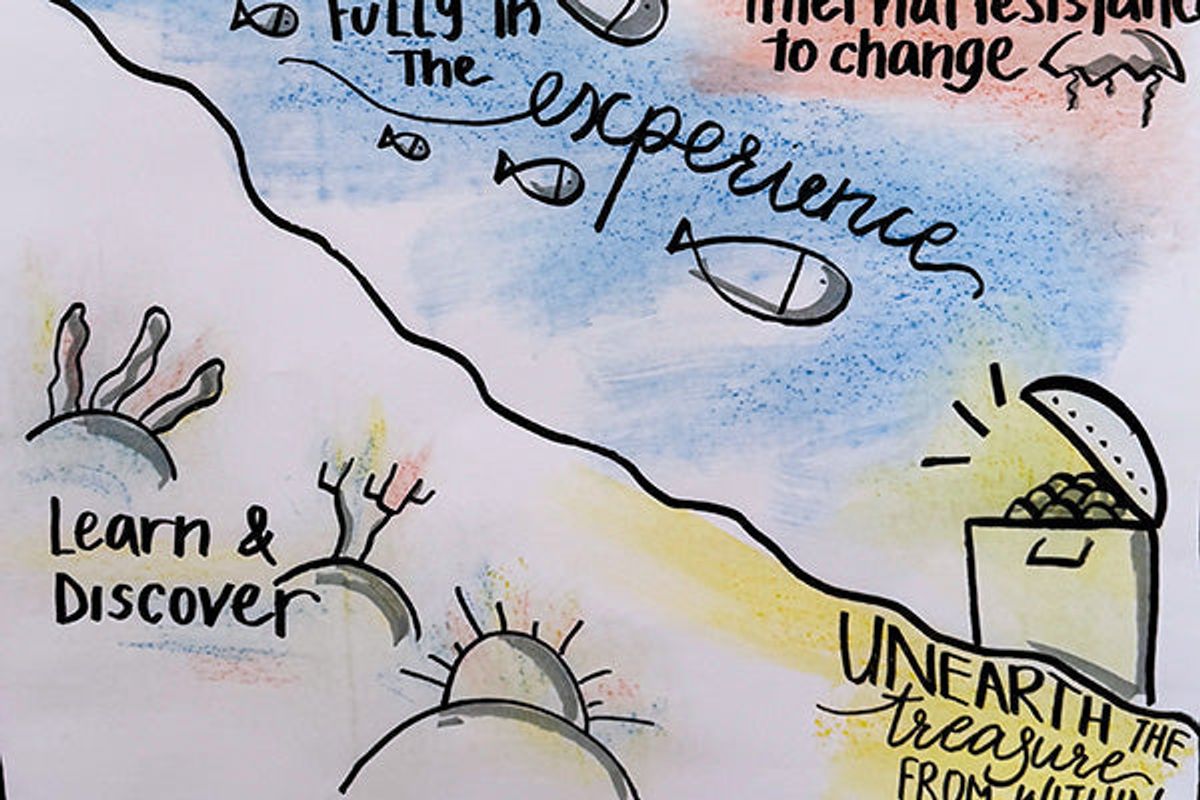 Fully in
The
experience
internal resistance
to change
Learn &
Discover
UNEARTH THE
treasure
FROM WITHIN